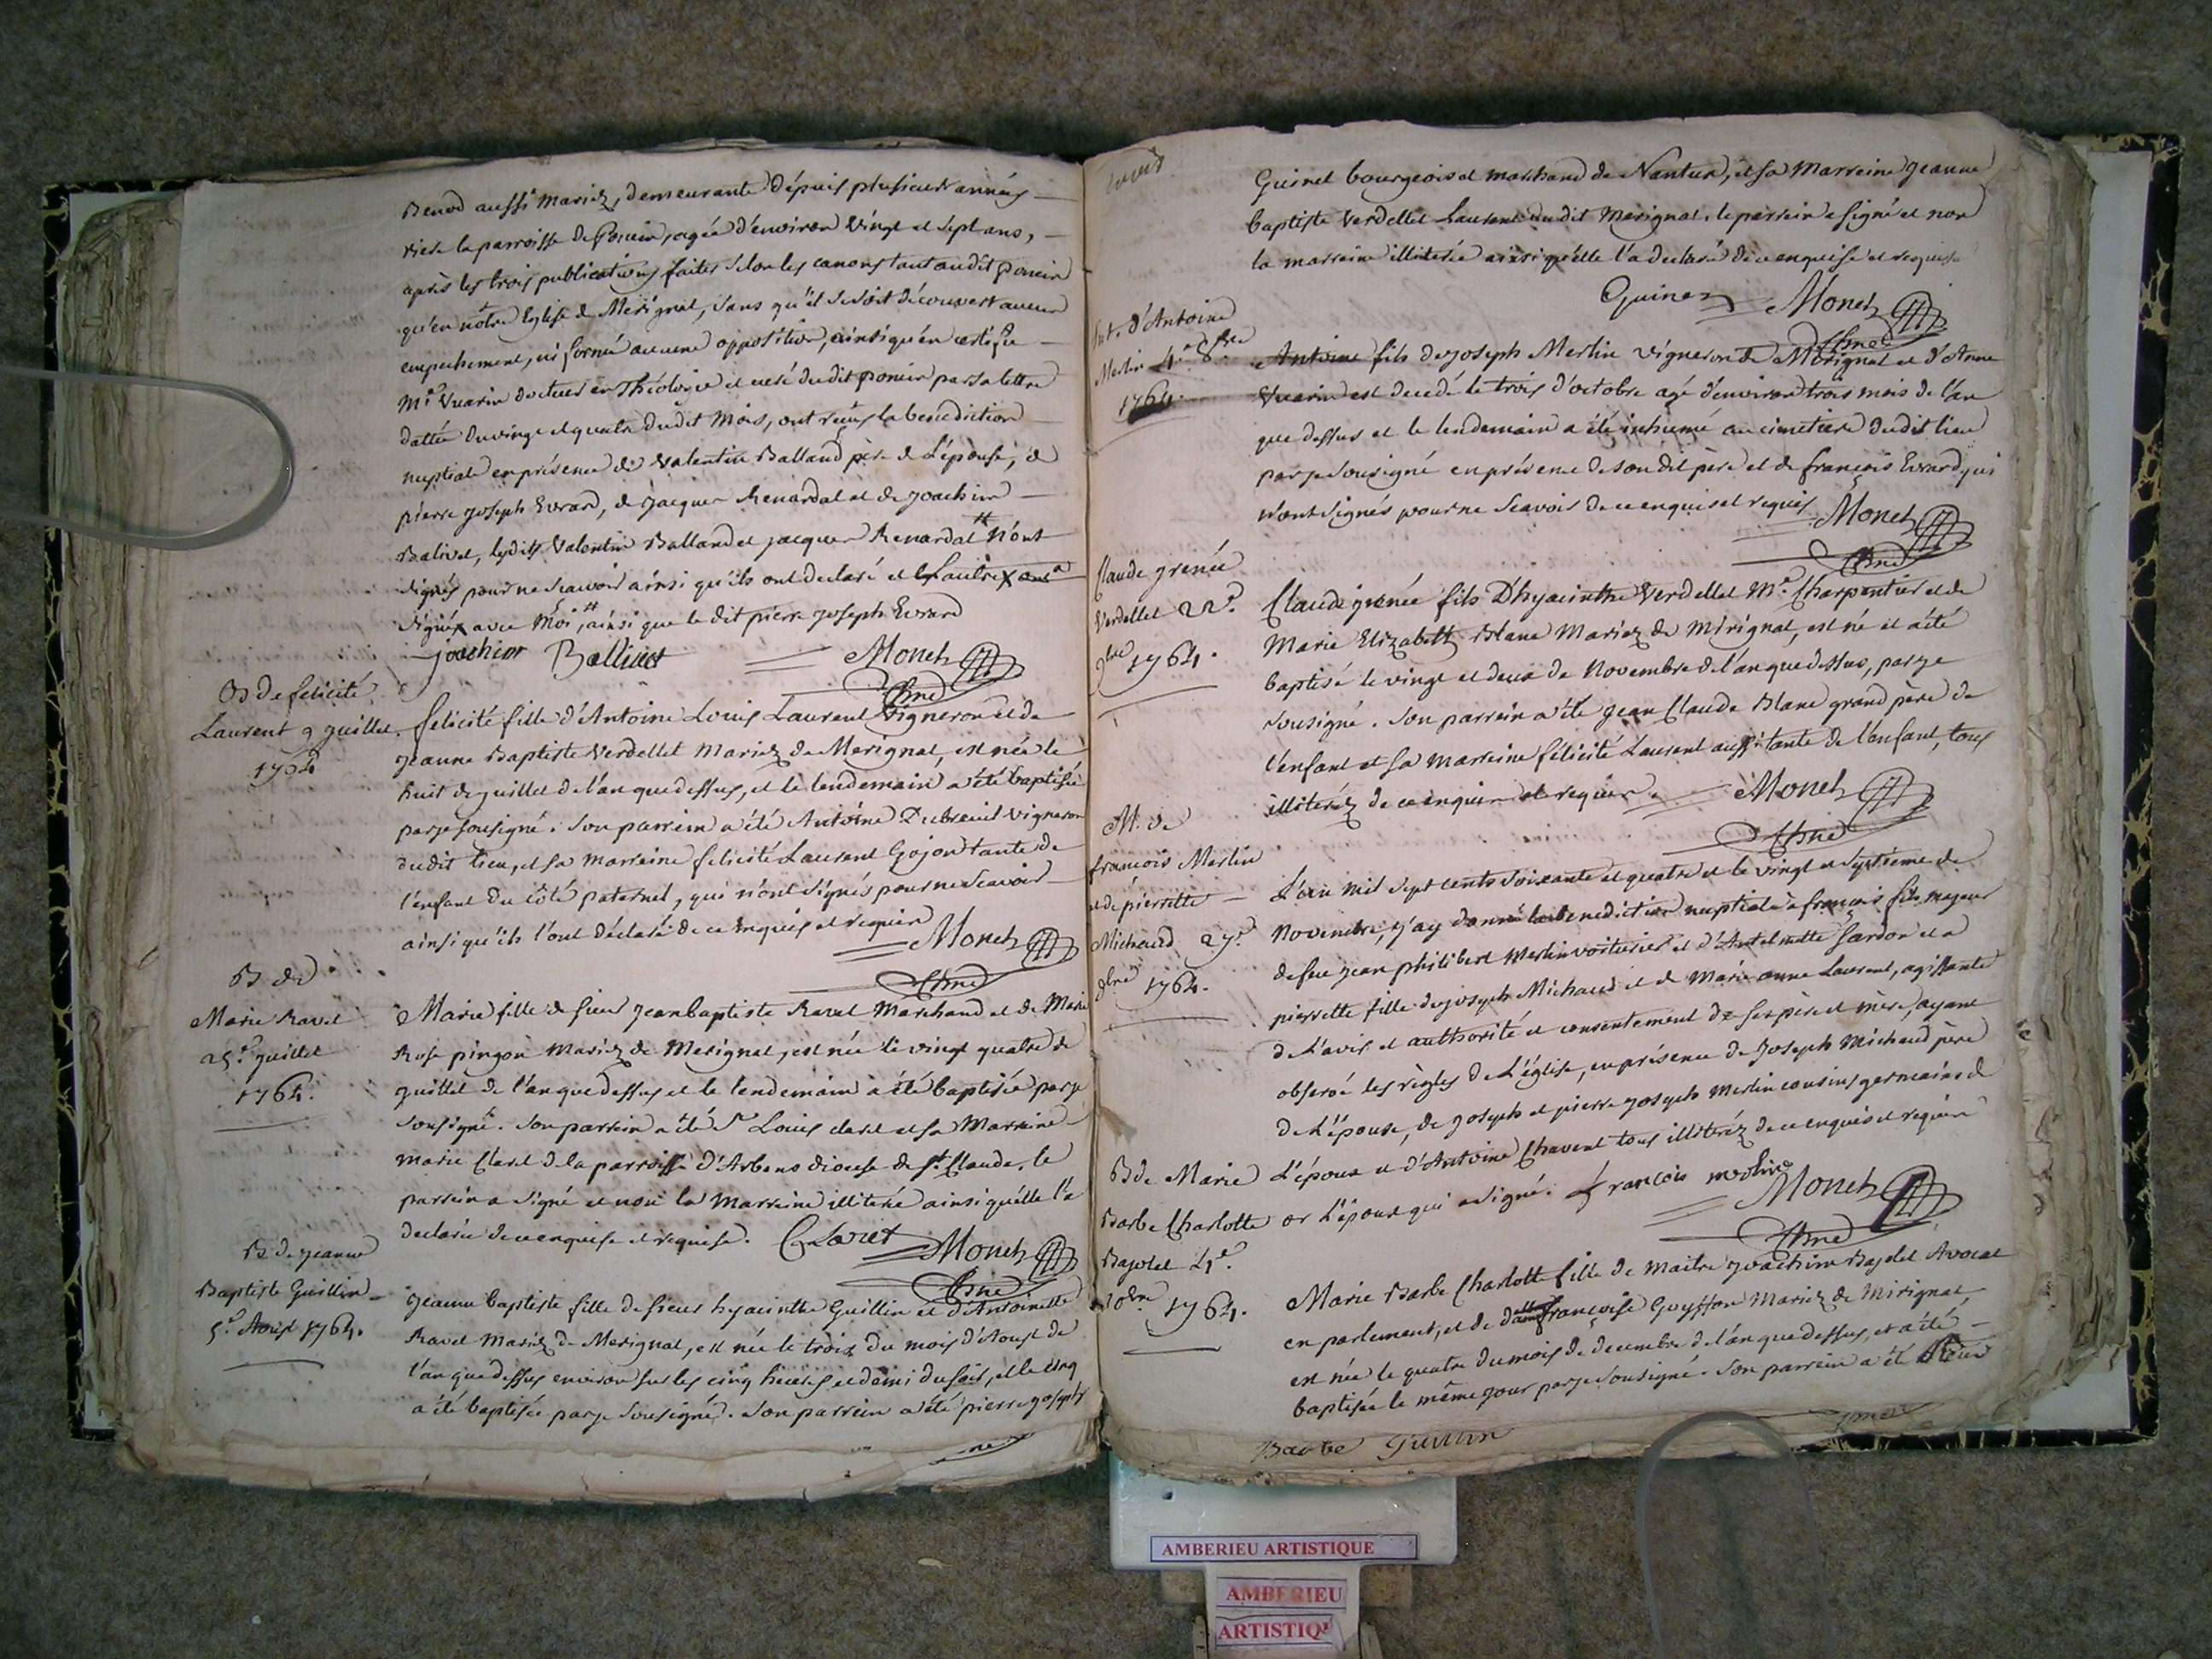 Benod aussi mariez, demeurante dépuis plusieurs années
riere la parroisse de Poncin, agée d'environ vingt et sept ans,
après les trois publications faites selon les canons tant audit poncin
qu'en nôtre Eglise de Mérignat, sans qu'il se soit découvert aucun
empechement, ni formé aucune opposition, ainsi qu'en certifie
Mre Vuarin docteur en Théologie et curé dudit poncin par sa lettre
dattée du vingt et quatre dudit mois, ont reçus la benediction
nuptiale en présence de valentin Balland père de L'épouse, de
pierre joseph Evrard, de jacques Renardat et de joachim
Balivet, lesdits Valentin Balland et jacques Renardat n'ont
signés pour ne scavoir ainsi qu'ils ont declaré et L'autre a
signé avec moi, ainsi que le dit pierre joseph Evrard
joachim Ballivet Monet
Curé
B de felicité
Laurent 9 juillet
1764
felicité fille d'Antoine Louis Laurent vigneron et de
jeanne Baptiste Verdellet mariez de Merignat, est née le
huit de juillet de l'an que dessus, et le lendemain a été baptisée
par je sousigné. Son parrein a été Antoine Dubreuil vigneron
dudit lieu, et sa marreine felicité Laurent Gojon tante de
l'enfant du côté paternel, qui n'ont signés pour ne scavoir
ainsi qu'ils l'ont déclaré de ce enquis et requis
Monet
Curé
B de
Marie Ravet
25e juillet
1764.
Marie fille de sieur jean baptiste Ravet Marchand et de Marie
Rose pingon mariez de Merignat, est née le vingt quatre de
juillet de l'an que dessus et le lendemain a été baptisée par je
sousigné. Son parrein a été Sr Louis claret et sa Marreine
marie Claret de la parroisse d'Arbens diocese de St Claude, le
parrein a signé et non la Marreine illiterée ainsi qu'elle l'a
declarée de ce enquise et requise. Claret Monet
Curé
B de jeanne
Baptiste Guillin
5e Aoust 1764.
jeanne baptiste fille de sieur hyacinthe Guillin et d'Antoinette
Ravet Mariez de Merignat, est née le trois du mois d'Aoust de
l'an que dessus environ sur les cinq heures et demi du soir, et le cinq
a été baptisée par je sousigné. Son parrein a été pierre joseph
Guinet bourgeois et marchand de Nantua, et sa Marreine jeanne
baptiste Verdellet Laurent dudit Merignat, le parrein a signé et non
la marreine illiterée ainsi qu'elle l'a declaré de ce enquise et requise
Guinet Monet
Curé
d'Antoine
Merlin 4e 8bre
1764.
Antoine fils de joseph Merlin vigneron de Mérignat et d'Anne
Vuarin est decedé le trois d'octobre agé d'environ trois mois de l'an
que dessus et le lendemain a été inhumé au cimetiere dudit lieu
par je sousigné en présence de son dit père et de françois Evrard qui
n'ont signés pour ne scavoir de ce enquis et requis
Monet
Curé
Claude
Verdellet 22e
9bre 1764.
Claude fils D'hyacinthe Verdellet Me Charpentier et de
Marie Elizabeth Blanc Mariez de Mérignat, est né et a été
baptisé le vingt et deux de Novembre de l'an que dessus, par je
sousigné. Son parrein a été jean Claude Blanc grand père de
l'enfant et sa marreine félicité Laurent aussi tante de l'enfant, tous
illiterez de ce enquis et requis. Monet
Curé
M. de
françois Merlin
et de pierrette
Michaud 27e
9bre 1764.
L'an mil sept cents soixante et quatre et le vingt et septieme de
Novembre, j'ay donné la benediction nuptiale à françois fils majeur
de feu jean philibert Merlin voiturier et d'Antelmette Sardon et a
pierrette fille de joseph Michaud et de Marie anne Laurent, agissante
de L'avis et authorité et consentement de ses père et mère, ayant
observé les règles de L'église, en présence de joseph Michaud père
de L'épouse, de joseph et pierre joseph Merlin cousins germains de
L'époux et d'Antoine Chavent tous illiterez de ce enquis et requis
or L'époux qui a signé. François merlin
Monet
Curé
B de Marie
Barbe Charlotte
Bajolet 4e
10bre 1764.
Marie Barbe Charlotte fille de maitre joachim Bajolet Avocat
en parlement, et de dame françoise Guyffon Mariez de Mérignat,
est née le quatre du mois de decembre de l'an que dessus, et a été
baptisée le même jour par je sousigné. Son parrein a été Sieur
Guillin
AMBERIEU ARTISTIQUE
AMBERIEU
ARTISTIQ